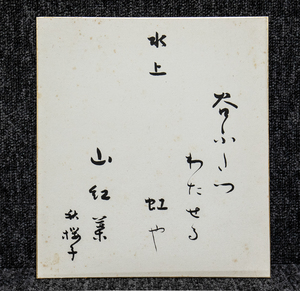 水上
谷ふたつ
わたせる
虹や
山紅葉
秋桜子